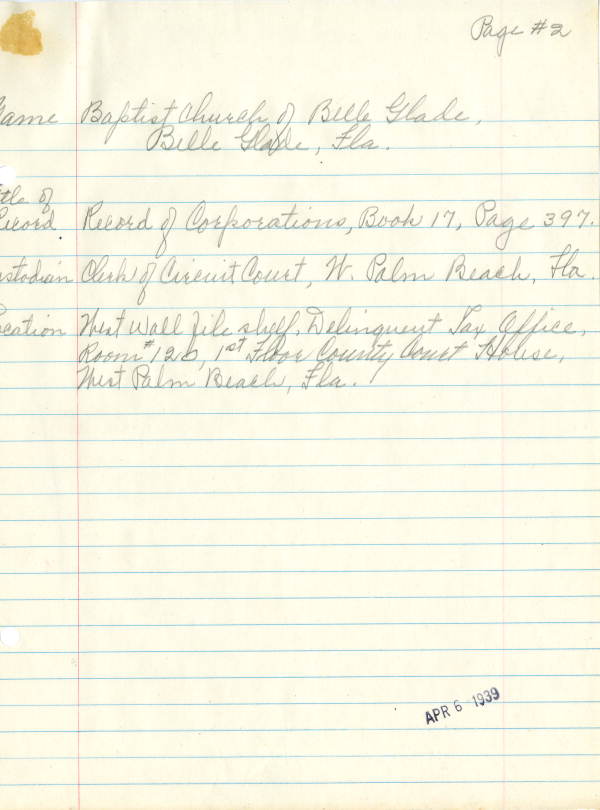 Page #2
Name Baptist Church of Belle Glade,
Belle Glade, Fla.
Title of
Record Record of Corporations, Book 17, Page 397.
Custodian Clerk of Circuit Court, W. Palm Beach, Fla.
Location West Wall file shelf, Delinquent Tax Office,
Room #126, 1st Floor County Court House,
West Palm Beach, Fla.
APR 6 1939